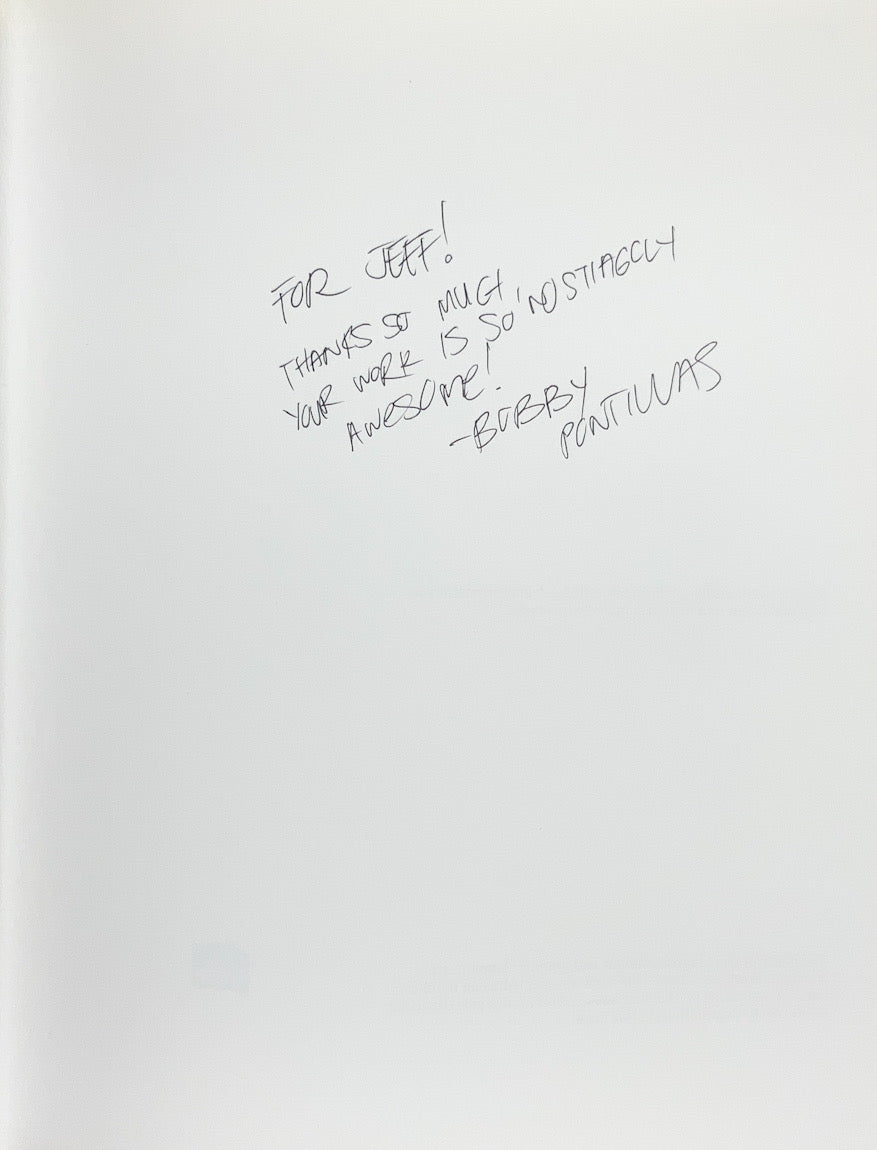 FOR JEFF!
THANKS SO MUCH,
YOUR WORK IS SO NOSTIAGCLY
AWESOME!
-BOBBY
PONTILLAS